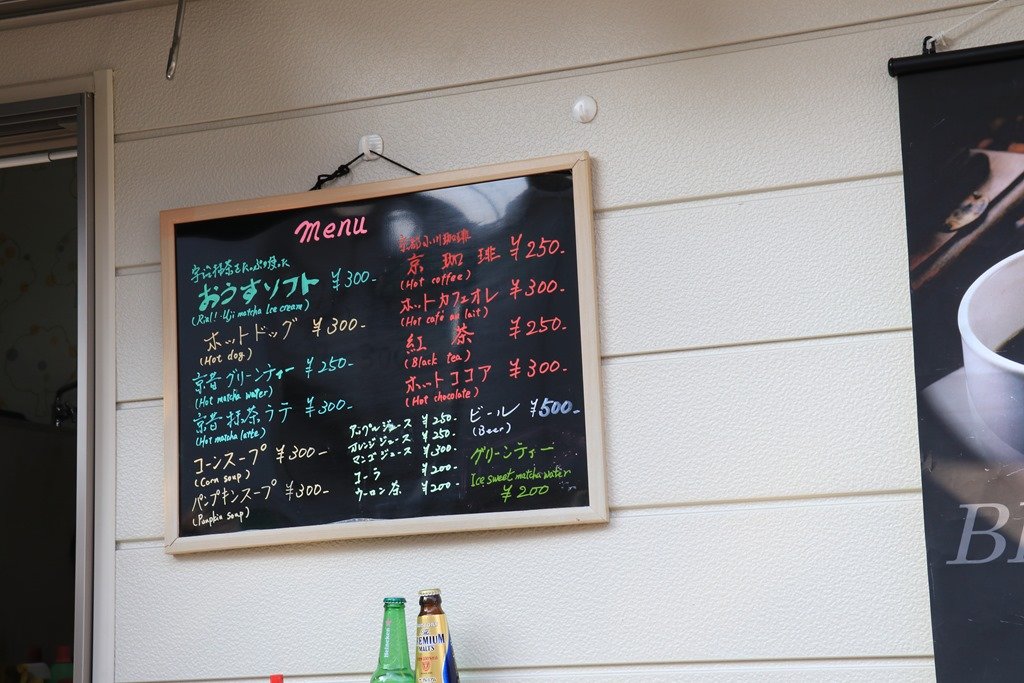 menu
宇治抹茶をたっぷり使った
おうすソフト ¥300-
(Real! Uji matcha Ice cream)
ホットドッグ ¥300-
(Hot dog)
京香グリーンティー ¥250-
(Hot matcha water)
京香抹茶ラテ ¥300-
(Hot matcha latte)
コーンスープ ¥300-
(Corn soup)
パンプキンスープ ¥300-
(Pumpkin soup)
京都小川珈琲
京珈琲 ¥250-
(Hot coffee)
ホットカフェオレ ¥300-
(Hot café au lait)
紅茶 ¥250-
(Black tea)
ホットココア ¥300-
(Hot chocolate)
アップルジュース ¥250-
オレンジジュース ¥250-
マンゴジュース ¥300-
コーラ ¥200-
ウーロン茶 ¥200-
ビール ¥500-
(Beer)
グリーンティー
Ice sweet matcha water
¥200
Heineken
PREMIUM
MALT'S